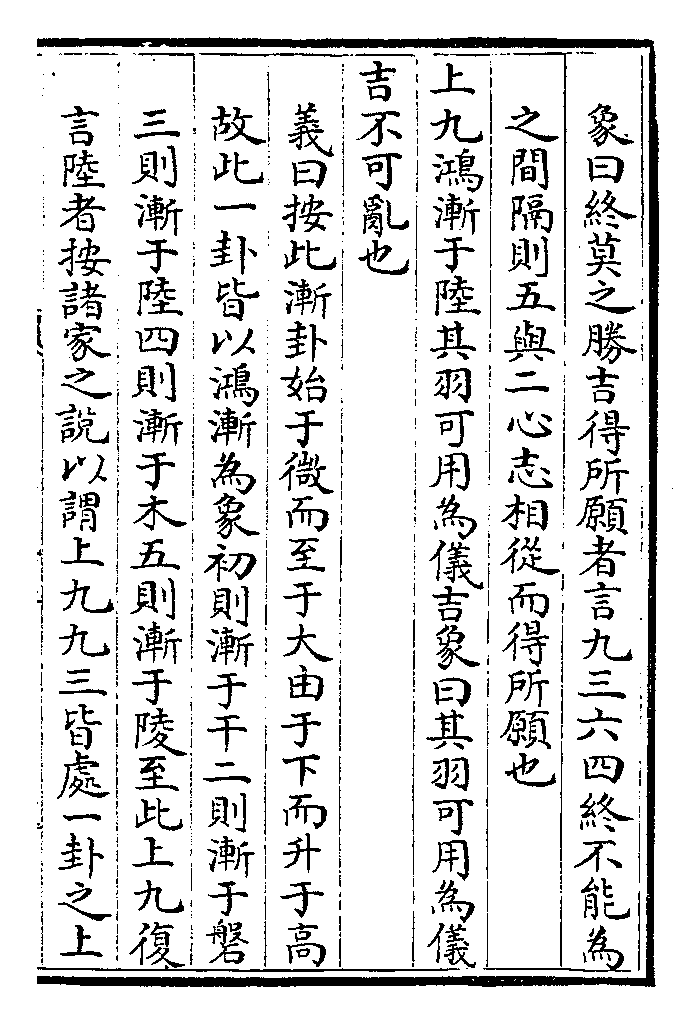 象曰終莫之勝吉得所願者言九三六四終不能為
之間隔則五與二心志相從而得所願也
上九鴻漸于陸其羽可用為儀吉象曰其羽可用為儀
吉不可亂也
義曰按此漸卦始于微而至于大由于下而升于高
故此一卦皆以鴻漸為象初則漸于干二則漸于磐
三則漸于陸四則漸于木五則漸于陵至此上九復
言陸者按諸家之說以謂上九九三皆處一卦之上